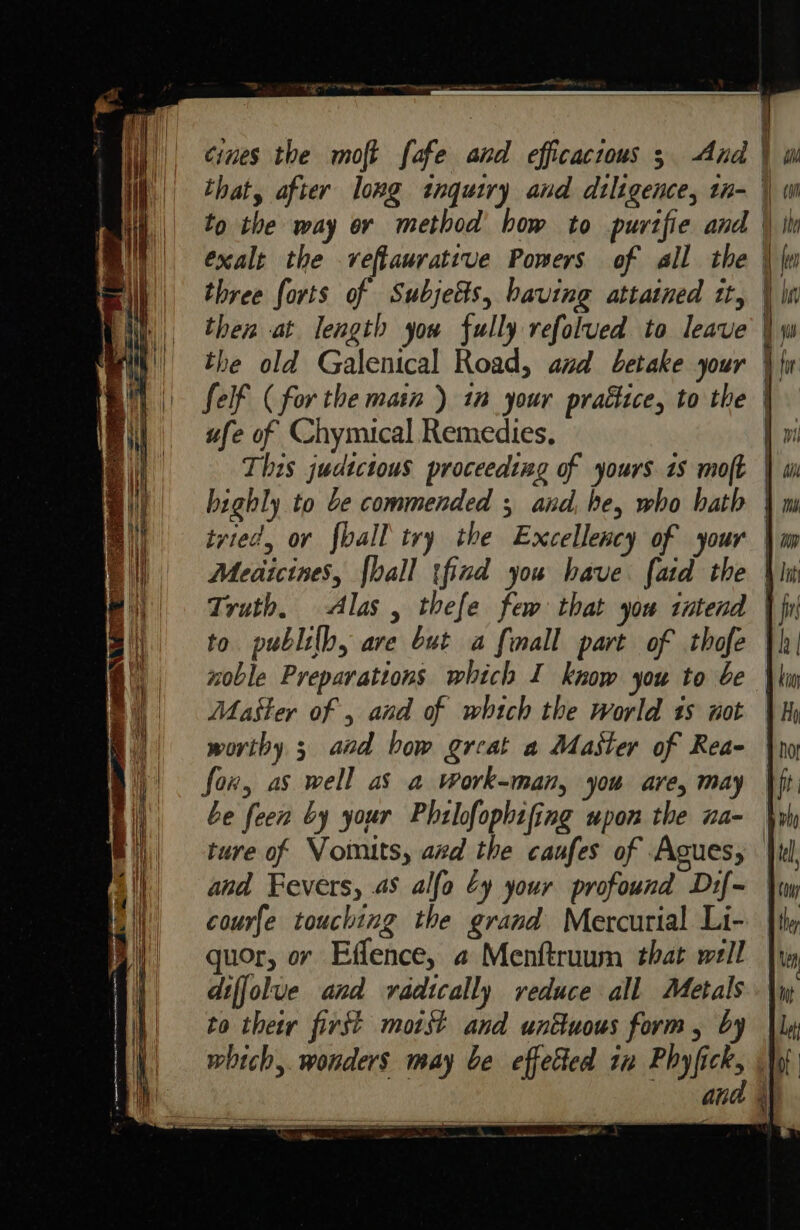 cines the moſt ſafe and efficacious ; And
that, after long inquiry and diligence, in-
to the way or method how to purifie and
exalt the reſtaurative Powers of all the
three ſorts of Subjects, having attained it,
then at length you fully reſolved to leave
the old Galenical Road, and betake your
ſelf ( for the main ) in your practice, to the
uſe of Chymical Remedies.
This judicious proceeding of yours is moſt
highly to be commended ; and, he, who hath
tried, or ſhall try the Excellency of your
Medicines, ſhall find you have ſaid the
Truth. Alas , theſe few that you intend
to publiſh, are but a ſmall part of thoſe
noble Preparations which I know you to be
Maſter of , and of which the world is not
worthy ; and how great a Maſter of Rea-
ſon, as well as a Work-man, you are, may
be ſeen by your Philoſophiſing upon the na-
ture of Vomits, and the cauſes of Agues,
and Fevers, as alſo by your profound Diſ-
courſe touching the grand Mercurial Li-
quor, or Eſſence, a Menſtruum that will
diſſolve and radically reduce all Metals
to their firſt moiſt and unctuous form , by
which, wonders may be effected in Phyſick,
and